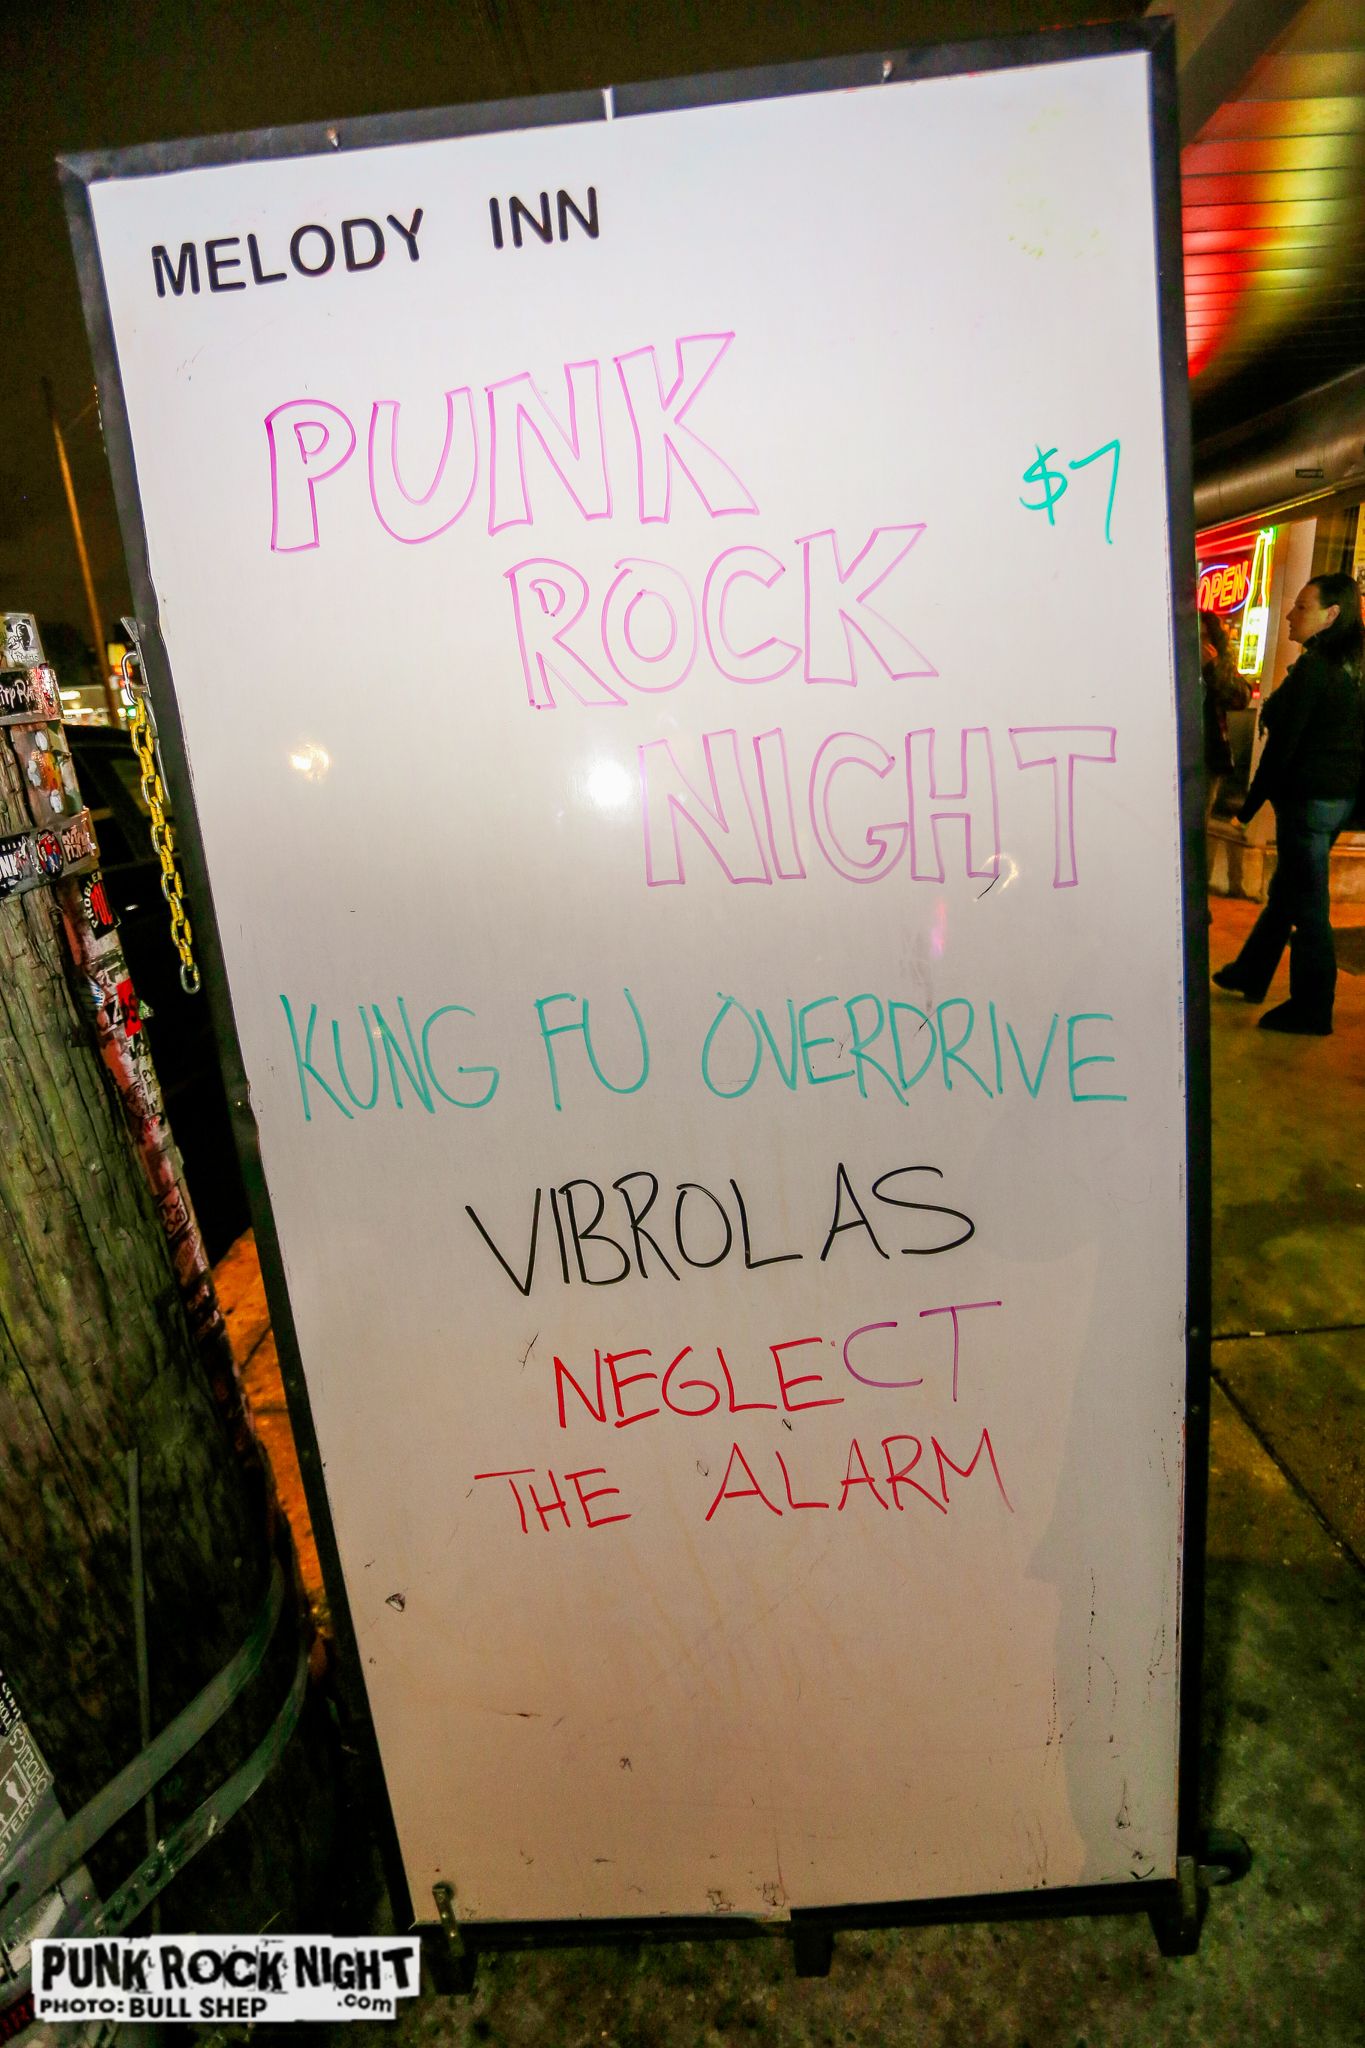 MELODY INN
PUNK
$7
ROCK
NIGHT
OPEN
KUNG FU OVERDRIVE
VIBROLAS
NEGLECT
THE ALARM
PUNK ROCK NIGHT
.com
PHOTO: BULL SHEP